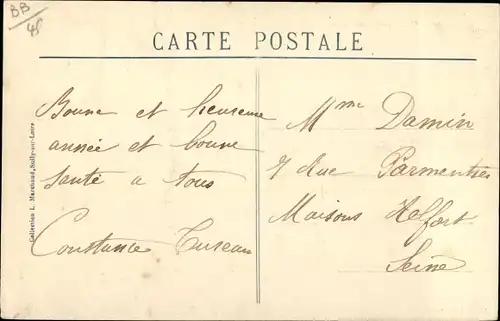 BB
CARTE POSTALE
Bonne et heureuse
année et bonne
santé a tous
Constance
Mme Damin
Rue Parmentier
Maisons Alfort
Seine
Collection L. Marchand, Sailly-sur-Laon